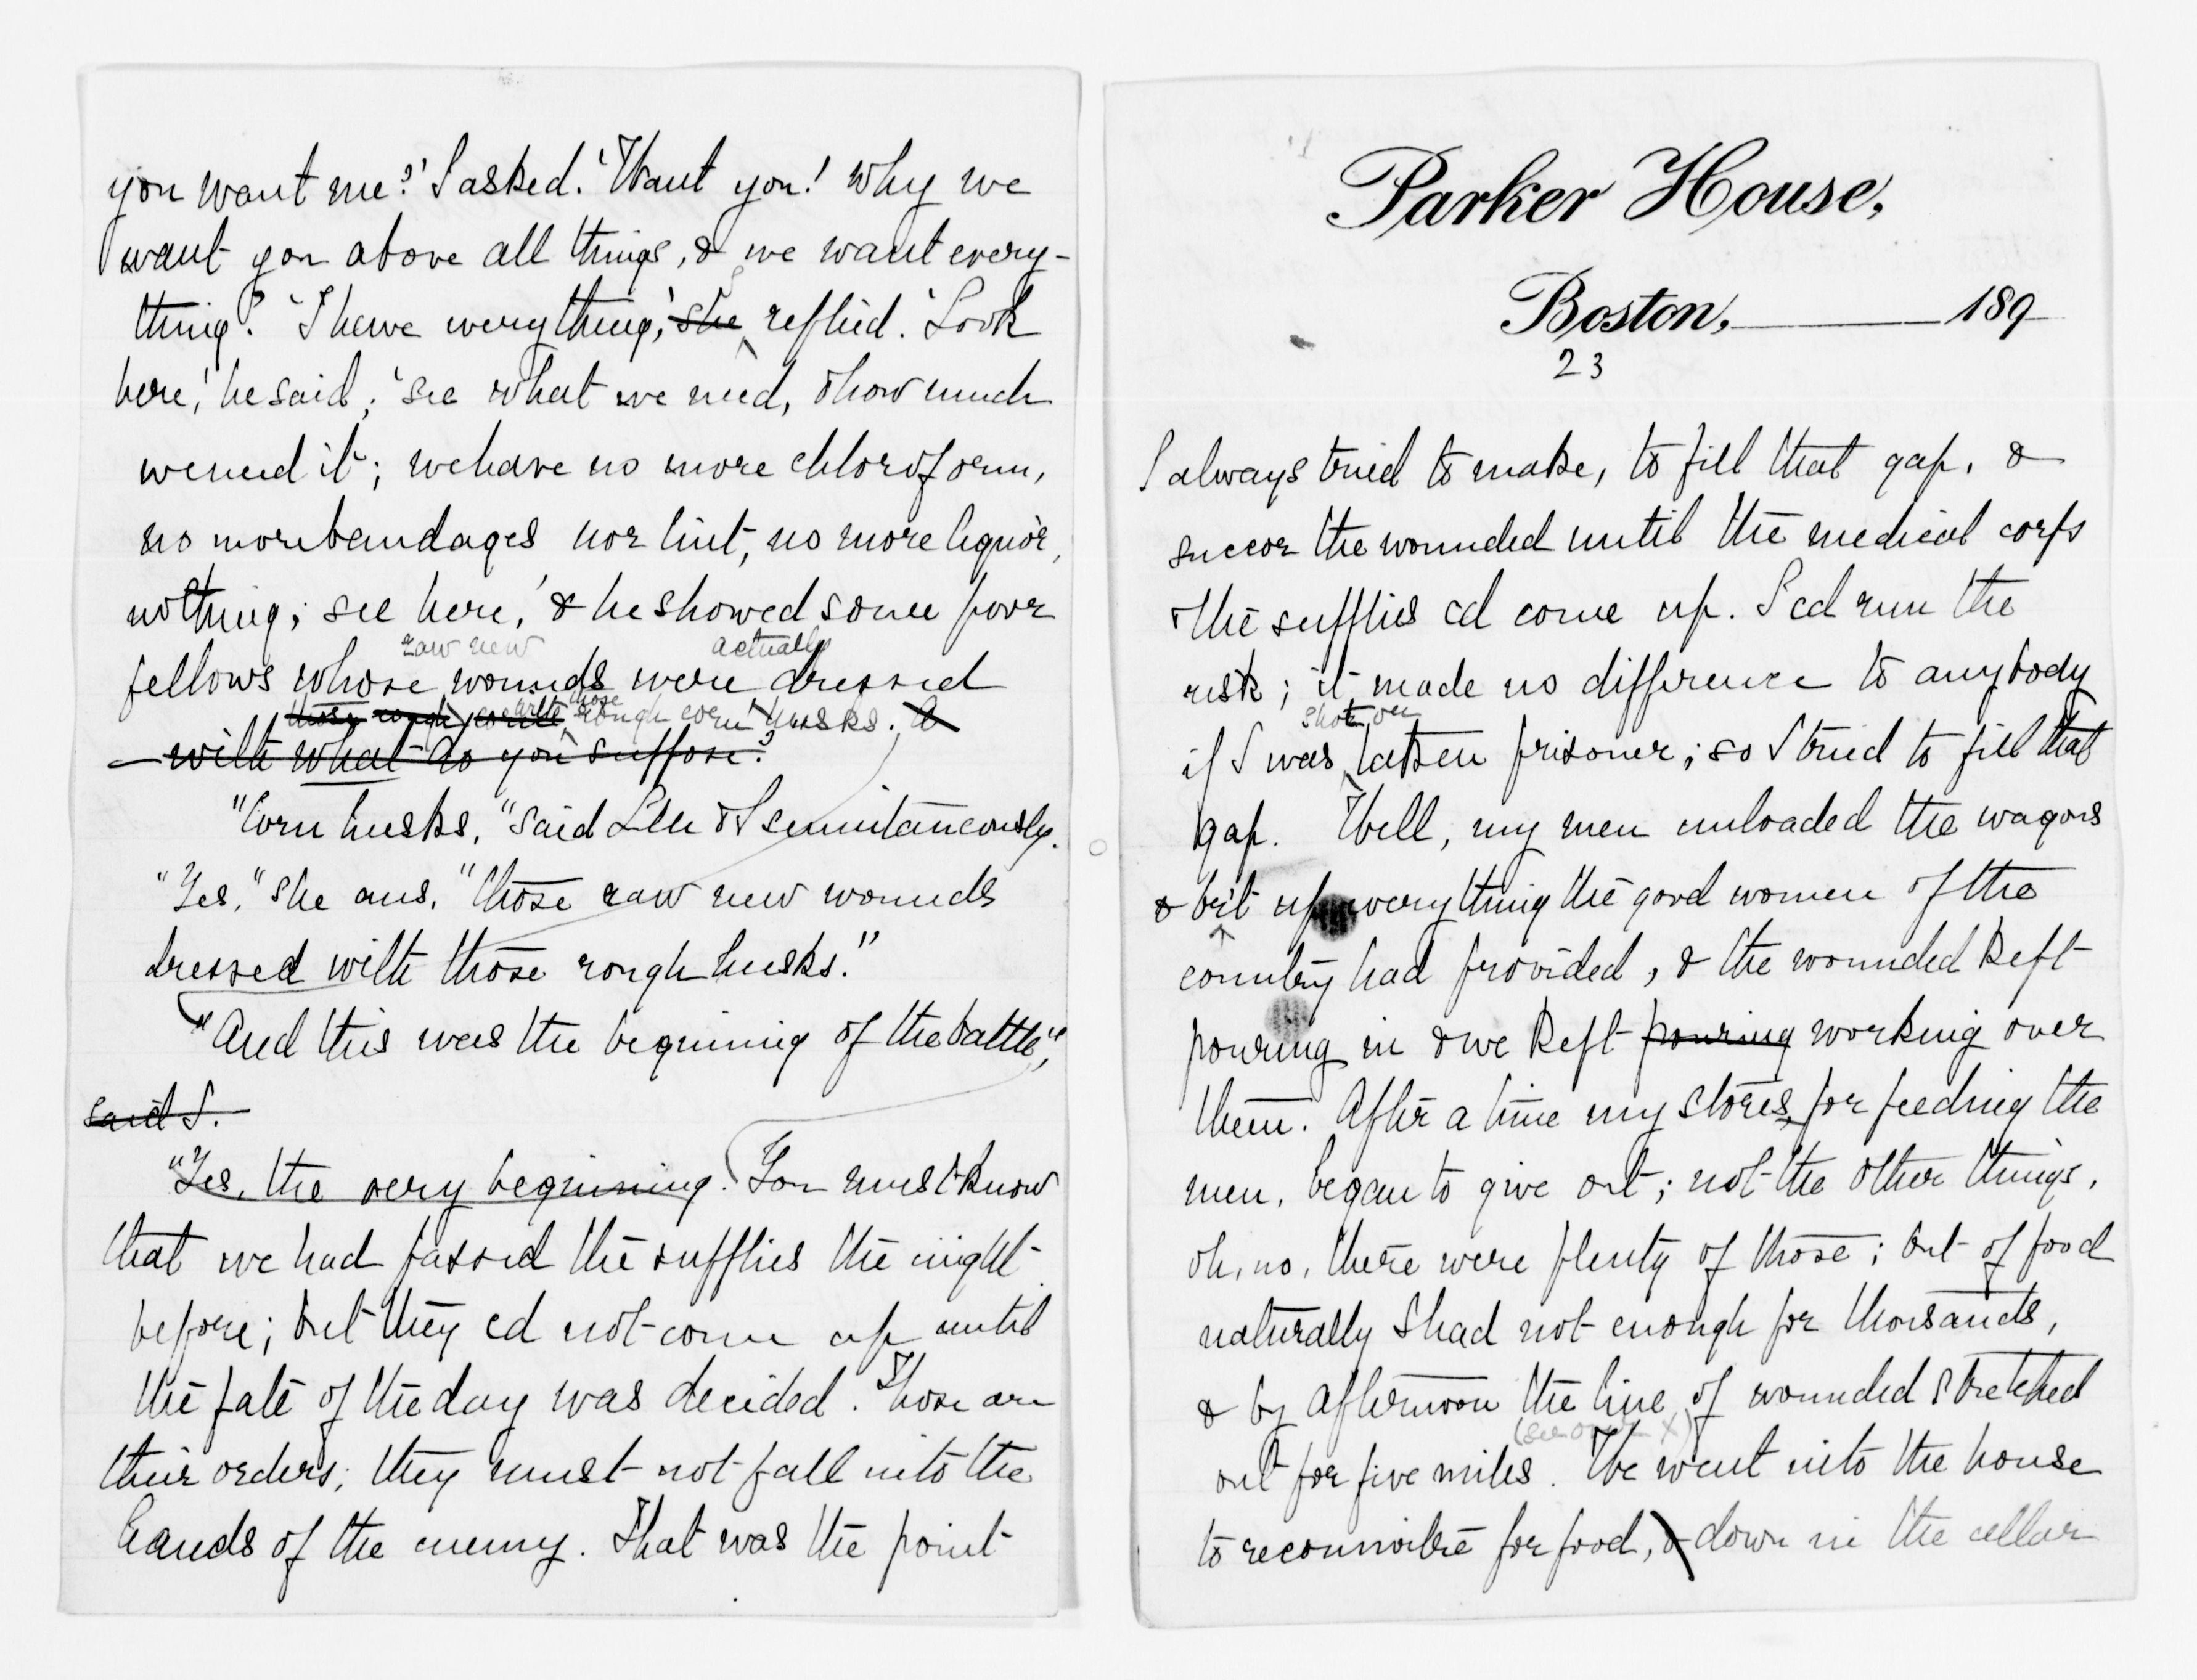 you want me?' I asked. 'Want you! Why we
want you above all things, & we want every-
thing.' 'I have everything,' she replied. 'Look
here,' he said; 'see what we need, & how much
we need it; we have no more chloroform,
no more bandages nor lint, no more liquor,
nothing; see here,' & he showed some poor
raw new actually
fellows whose wounds were dressed
those rough with those rough corn husks. &
– with what do you suppose?
"Corn husks," said Lee & I simultaneously.
"Yes," she ans. "those raw new wounds
dressed with those rough husks."
"And this was the beginning of the battle,"
said I.
"Yes, the very beginning. You must know
that we had passed the supplies the night
before; but they cd not come up until
the fate of the day was decided. Those are
their orders; they must not fall into the
hands of the enemy. That was the point
Parker House,
Boston, 189
23
I always tried to make, to fill that gap, &
succor the wounded until the medical corps
& the supplies cd come up. I cd run the
risk; it made no difference to anybody
shot or
if I was taken prisoner; so I tried to fill that
gap. Well, my men unloaded the wagons
& brt up everything the good women of the
country had provided, & the wounded kept
pouring in & we kept pouring working over
them. After a time my stores, for feeding the
men, began to give out; not the other things,
oh, no, there were plenty of those; but of food
naturally I had not enough for thousands,
& by afternoon the line of wounded stretched
out for five miles. We went into the house
to reconnoitre for food, & down in the cellar